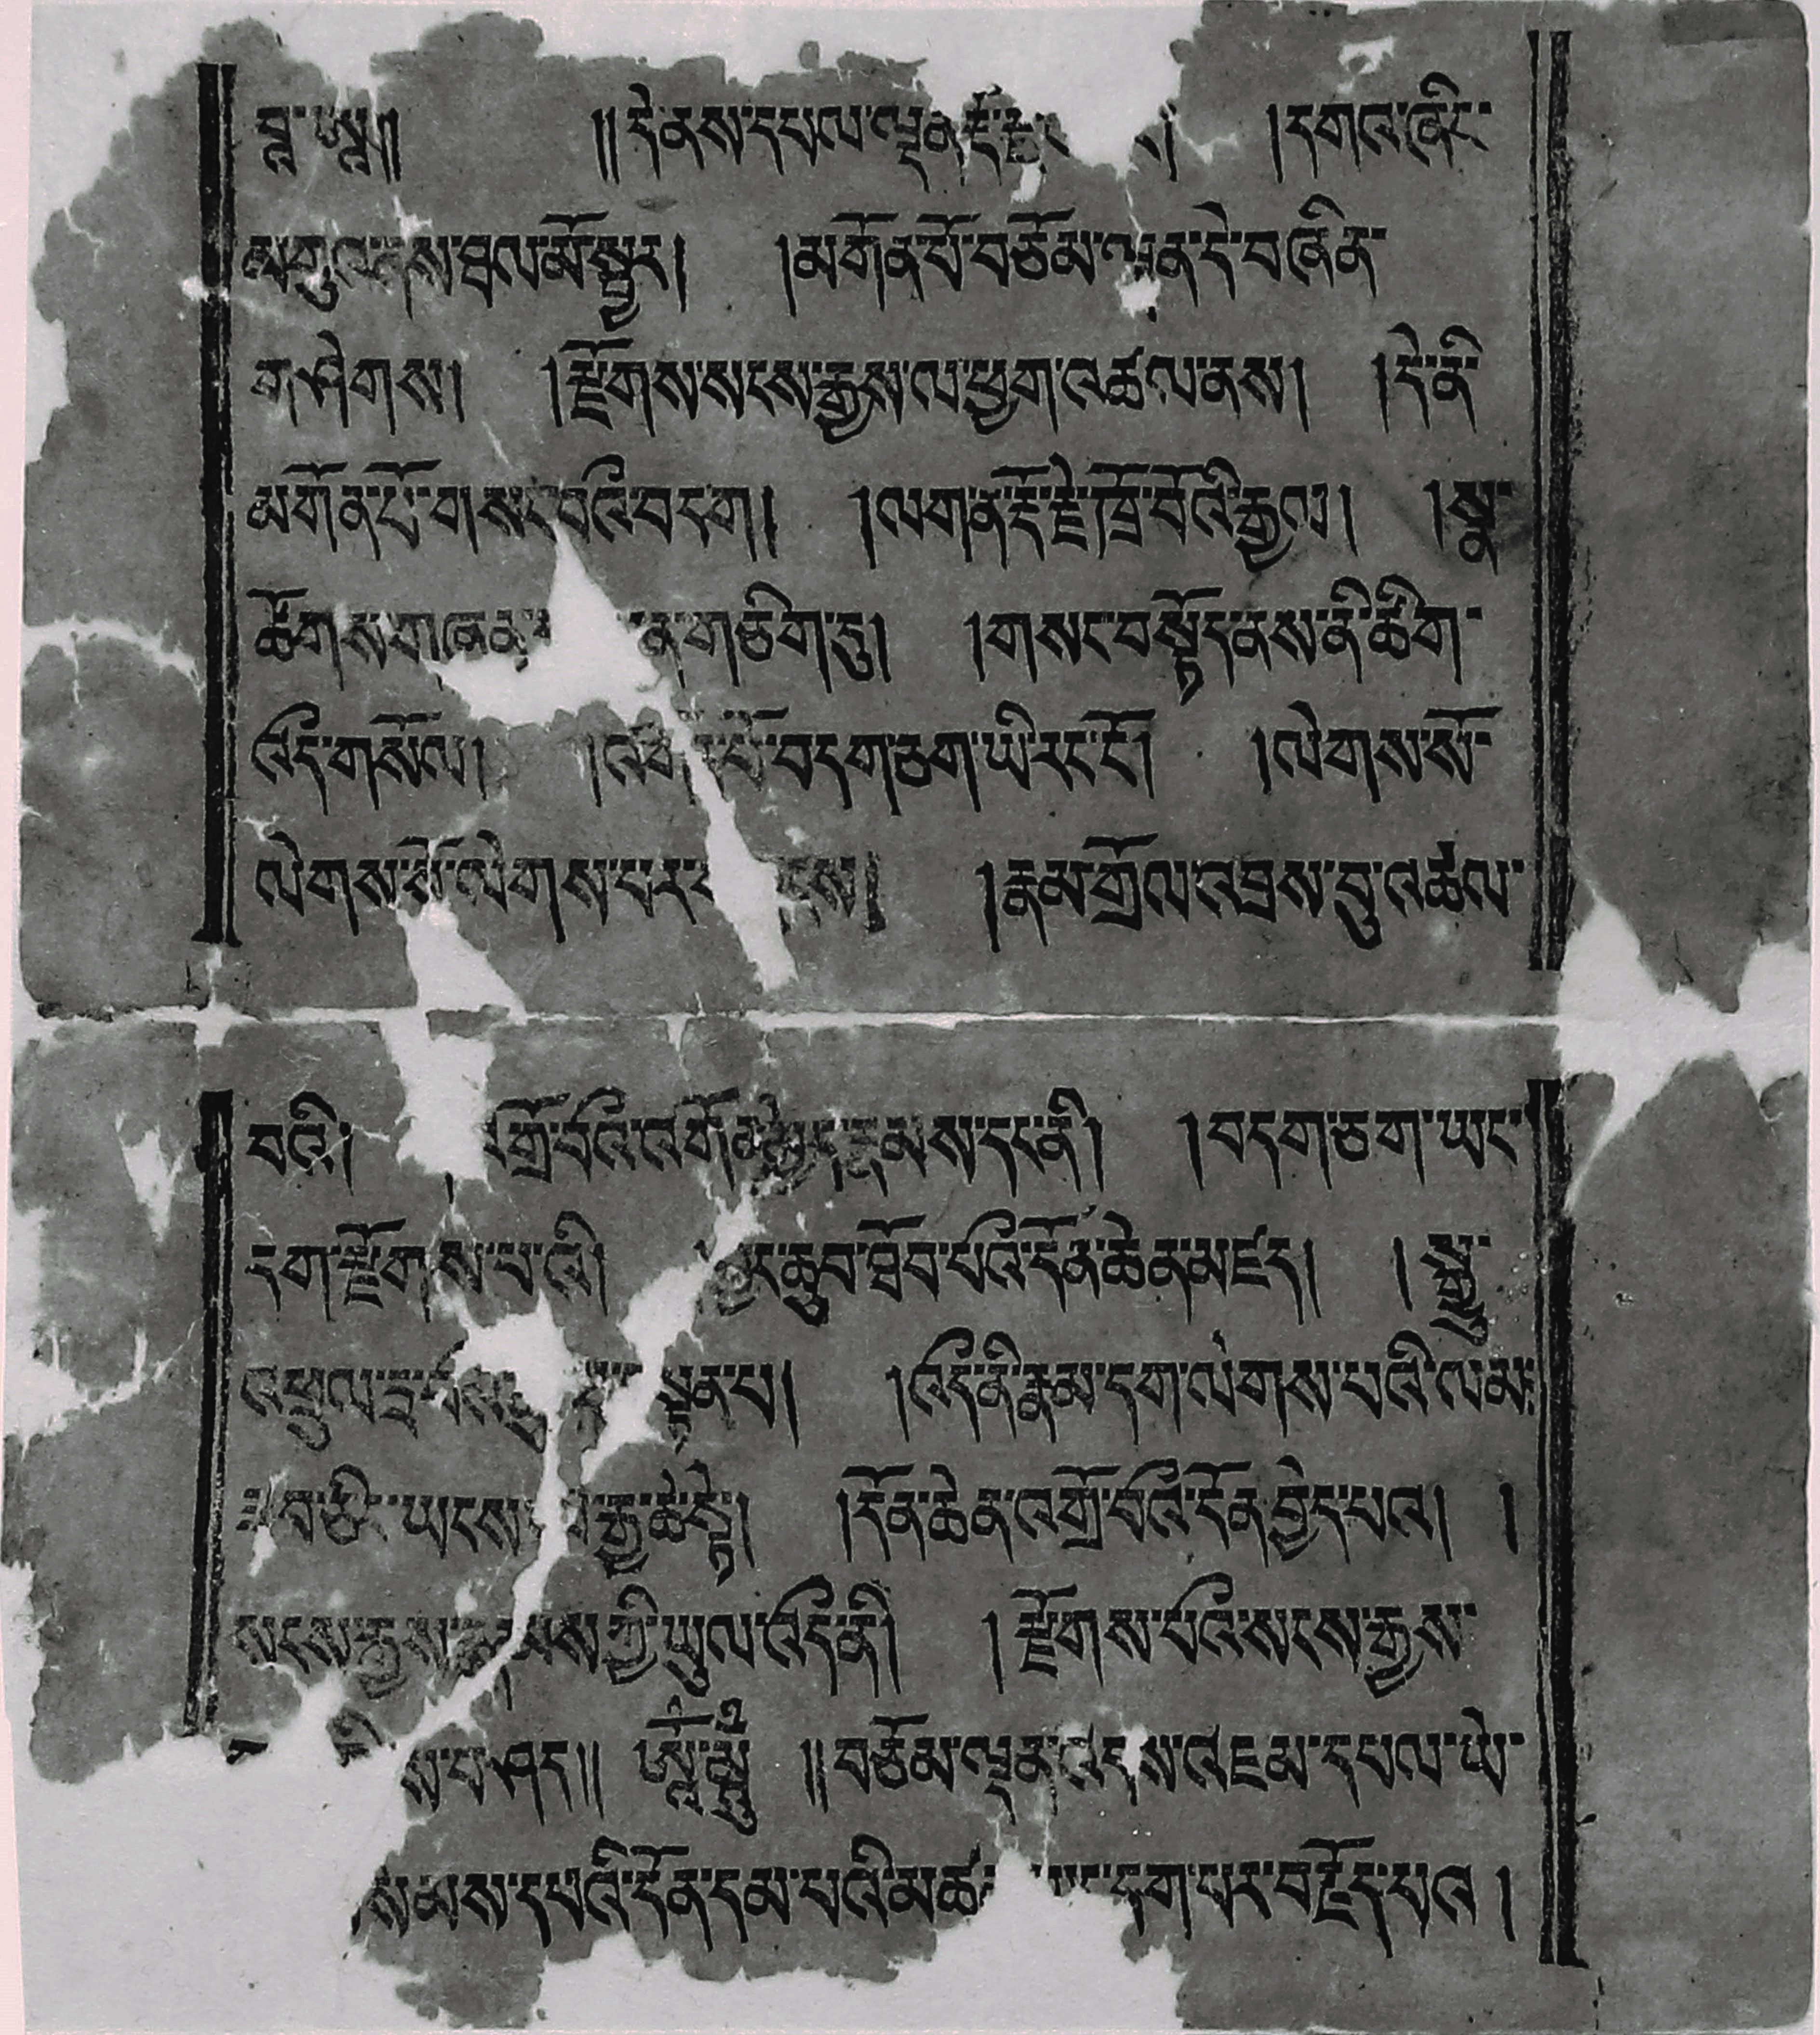 ཧཱུ་ཨཱ།། །།དེ་ནས་དཔལ་ལྡན་རྡོ་རྗེ །དགའ་ཞིང་
མགུ་ནས་ཐལ་མོ་སྦྱར། །མགོན་པོ་བཅོམ་ལྡན་དེ་བཞིན་
གཤེགས། །རྫོགས་སངས་རྒྱས་ལ་ཕྱག་འཚལ་ནས། །དེ་ནི་
མགོན་པོ་གསང་བའི་བདག། །ལག་ན་རྡོ་རྗེ་ཁྲོ་བོའི་རྒྱལ། །སྣ་
ཚོགས་གཞན་ ན་གཅིག་དུ། །གསང་བསྟོད་ནས་ནི་ཚིག་
འདི་གསོལ། །མགོན་པོ་བདག་ཅག་ཡི་རང་ངོ། །ལེགས་སོ་
ལེགས་སོ་ལེགས་པར་ །རྣམ་གྲོལ་འབྲས་བུ་འཚལ་
བའི། འགྲོ་བའི་འགོན་མྱེད་རྣམས་དང་ནི། །བདག་ཅག་ཡང་
དག་རྫོགས་པ་འི། བྱང་ཆུབ་ཐོབ་པའི་དོན་ཆེན་མཛད། །སྒྱུ་
འཕྲུལ་དྲ་བའི་ སྟན་པ། །འདི་ནི་རྣམ་དག་ལེགས་པའི་ལམ།
ཟབ་ཅིང་ཡངས་ རྒྱ་ཆེ་སྟེ། །དོན་ཆེན་འགྲོ་བའི་དོན་བྱེད་པའ། །
སངས་རྒྱས་རྣམས་ཀྱི་ཡུལ་འདི་ནི། །རྫོགས་པའི་སངས་རྒྱས་
ས་བཤད།། །།བཅོམ་ལྡན་འདས་འཇམ་དཔལ་ཡེ་
སེམས་དཔའི་དོན་དམ་པའི་མཚན་ དག་པར་བརྗོད་པའ །